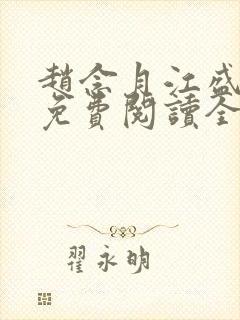 趙念月江盛
免費閱讀全
翟永明